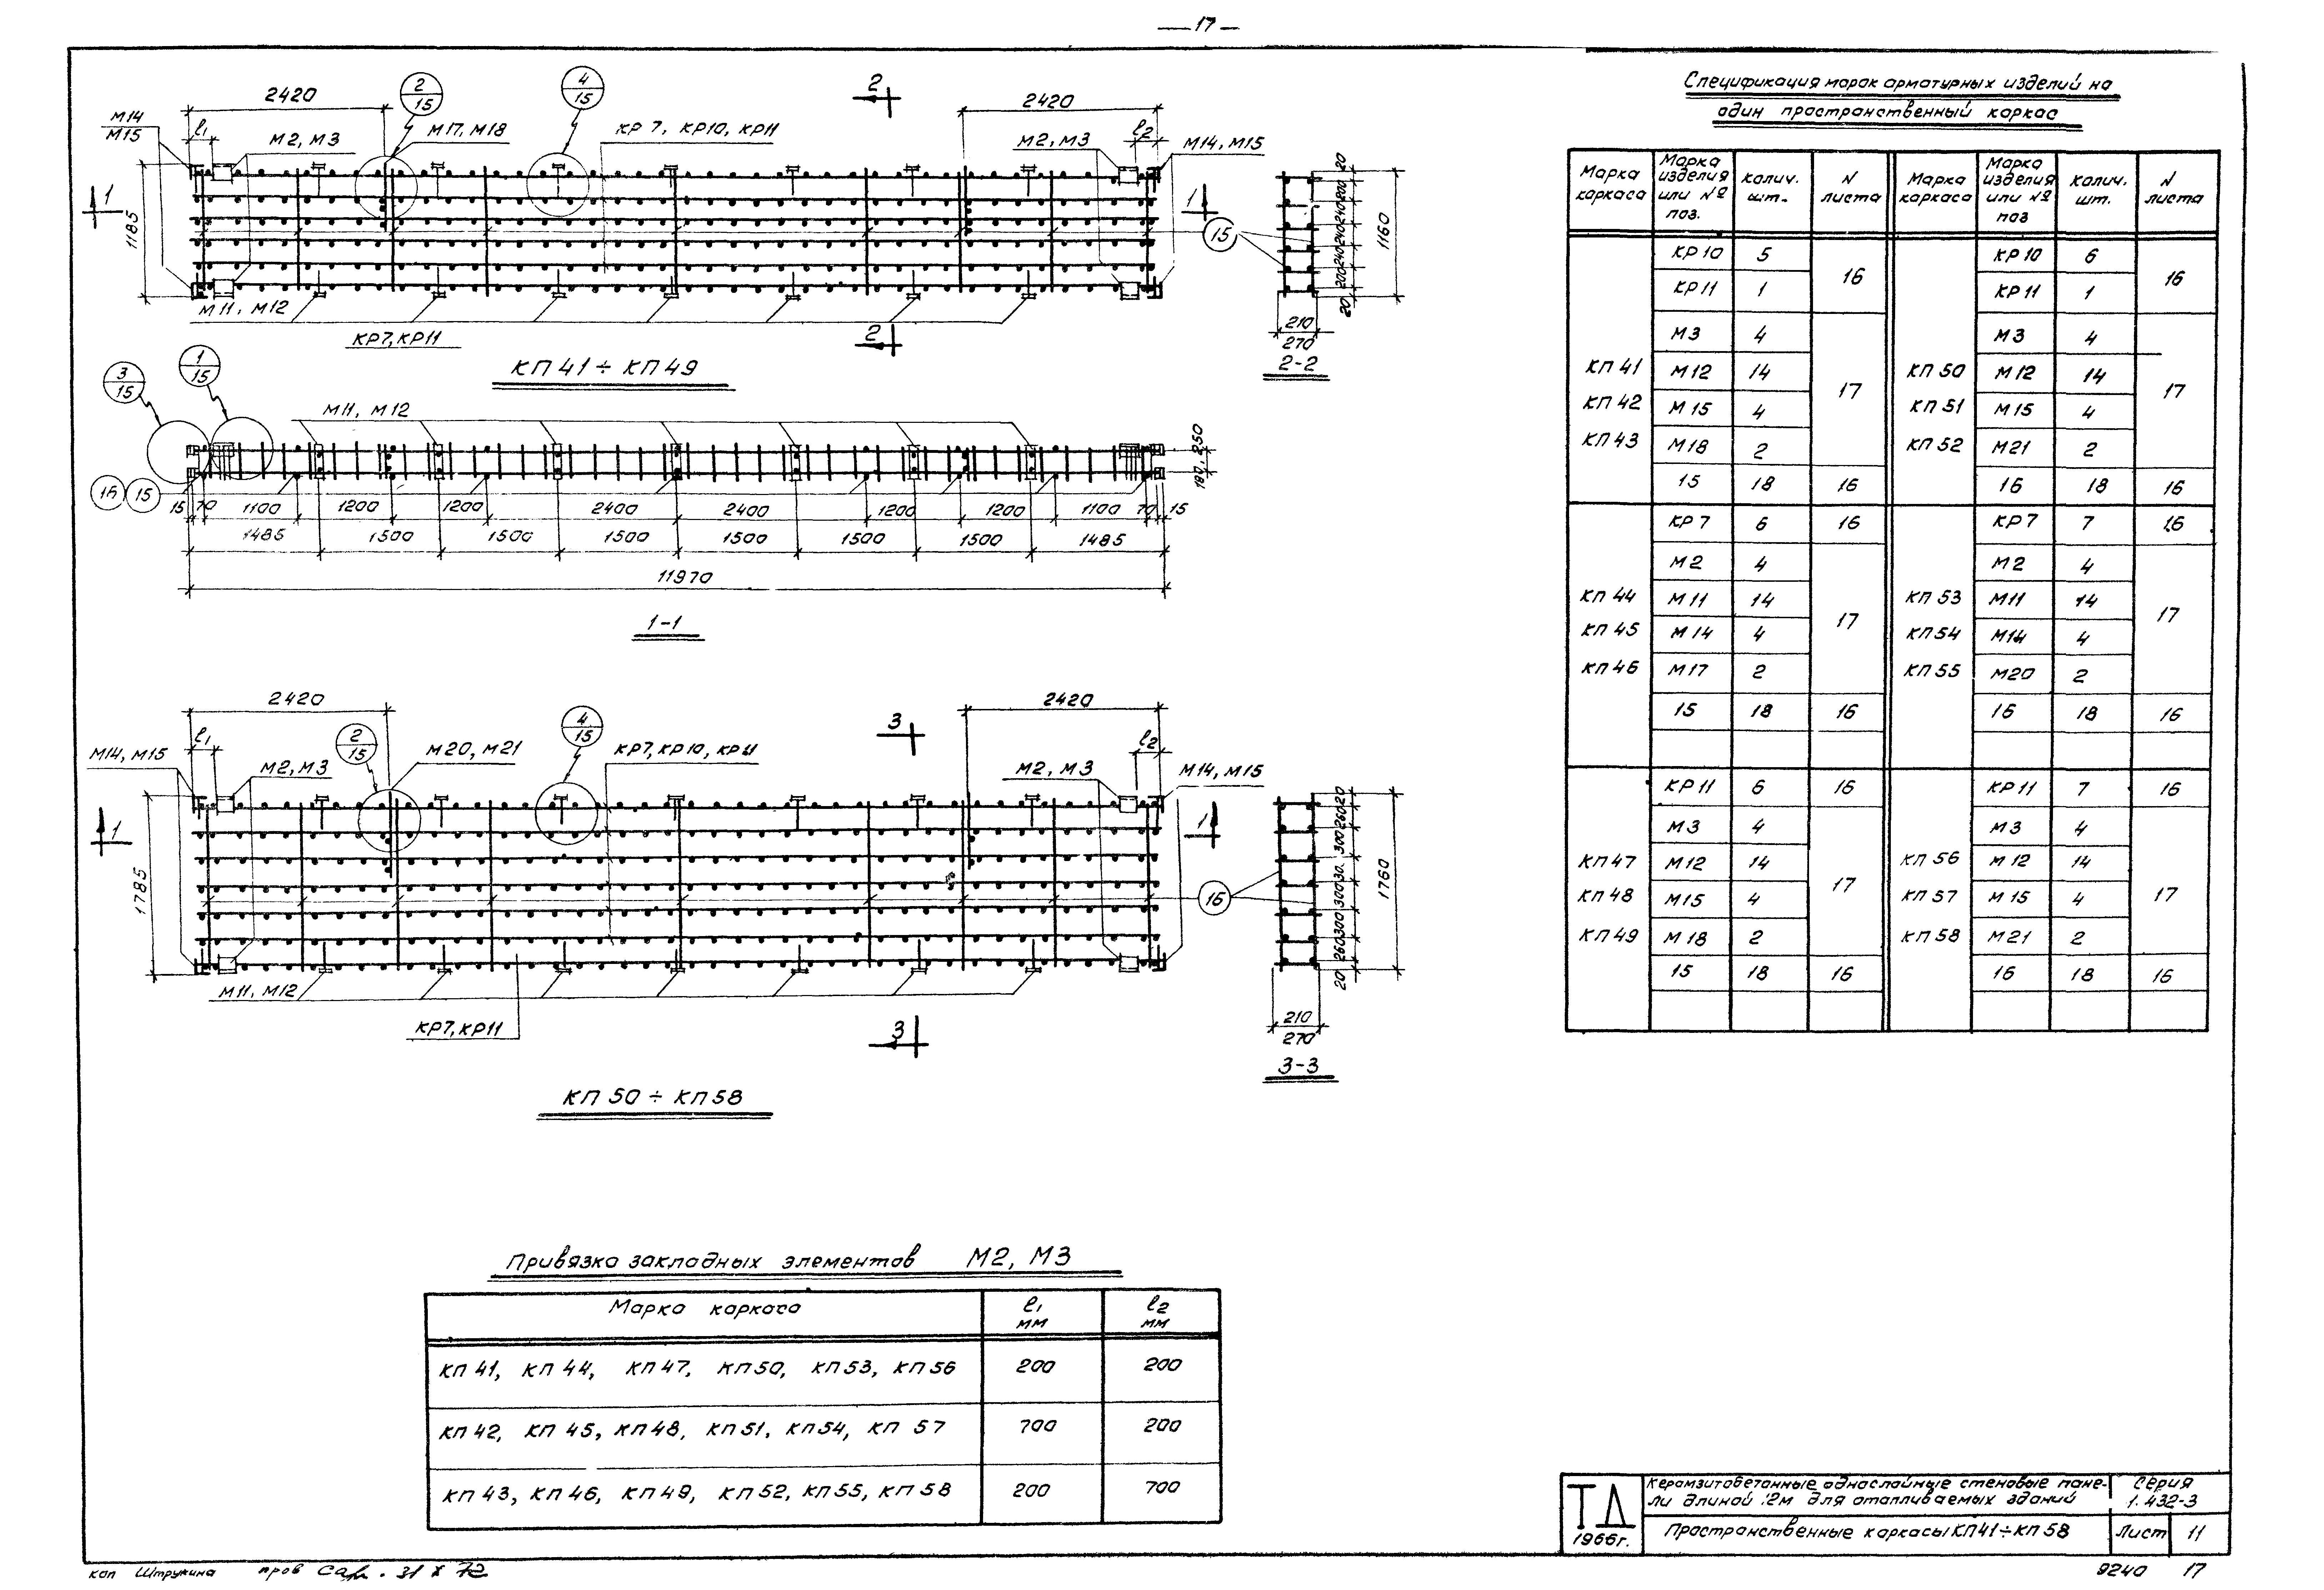 — 17 —
2420
2/15
4/15
2
2420
М14
М15
l1
М2, М3
М17, М18
КР 7, КР10, КР11
М2, М3
l2
М14, М15
1
1185
1
15
20 200 240 240 240 200 20
1160
М11, М12
КР7, КР11
2
210
270
КП 41 ÷ КП 49
2-2
3/15
1/15
М11, М12
180, 250
16
15
15 70 1100 1200 1200 2400 2400 1200 1200 1100 70 15
1485 1500 1500 1500 1500 1500 1500 1485
11970
1-1
2420
2/15
4/15
3
2420
l1
М14, М15
М2, М3
М20, М21
КР7, КР10, КР11
М2, М3
l2
М14, М15
1
1785
1
16
20 260 300 30. 300 300 260 20
1760
М11, М12
КР7, КР11
3
210
270
3-3
КП 50 ÷ КП 58
Спецификация марок арматурных изделий на
один пространственный каркас
Марка каркаса | Марка изделия или № поз. | колич. шт. | N листа | Марка каркаса | Марка изделия или № поз | колич. шт. | N листа
КР 10 5 16 КР 10 6 16
КР 11 1 КР 11 1
М3 4 17 М3 4 17
КП 41 М12 14 КП 50 М12 14
КП 42 М15 4 КП 51 М15 4
КП 43 М18 2 КП 52 М21 2
15 18 16 16 18 16
КР 7 6 16 КР 7 7 16
М2 4 17 М2 4 17
КП 44 М11 14 КП 53 М11 14
КП 45 М14 4 КП 54 М14 4
КП 46 М17 2 КП 55 М20 2
15 18 16 16 18 16
КР 11 6 16 КР 11 7 16
М3 4 17 М3 4 17
КП 47 М12 14 КП 56 М12 14
КП 48 М15 4 КП 57 М15 4
КП 49 М18 2 КП 58 М21 2
15 18 16 16 18 16
Привязка закладных элементов М2, М3
Марка каркаса | l1 мм | l2 мм
КП 41, КП 44, КП 47, КП 50, КП 53, КП 56 200 200
КП 42, КП 45, КП 48, КП 51, КП 54, КП 57 700 200
КП 43, КП 46, КП 49, КП 52, КП 55, КП 58 200 700
ТД
1966г.
Керамзитобетонные однослойные стеновые пане-
ли длиной 12м для отапливаемых зданий
Серия
1.432-3
Пространственные каркасы КП41÷КП 58
Лист 11
коп Штрукина пров 31 X 72
9240 17